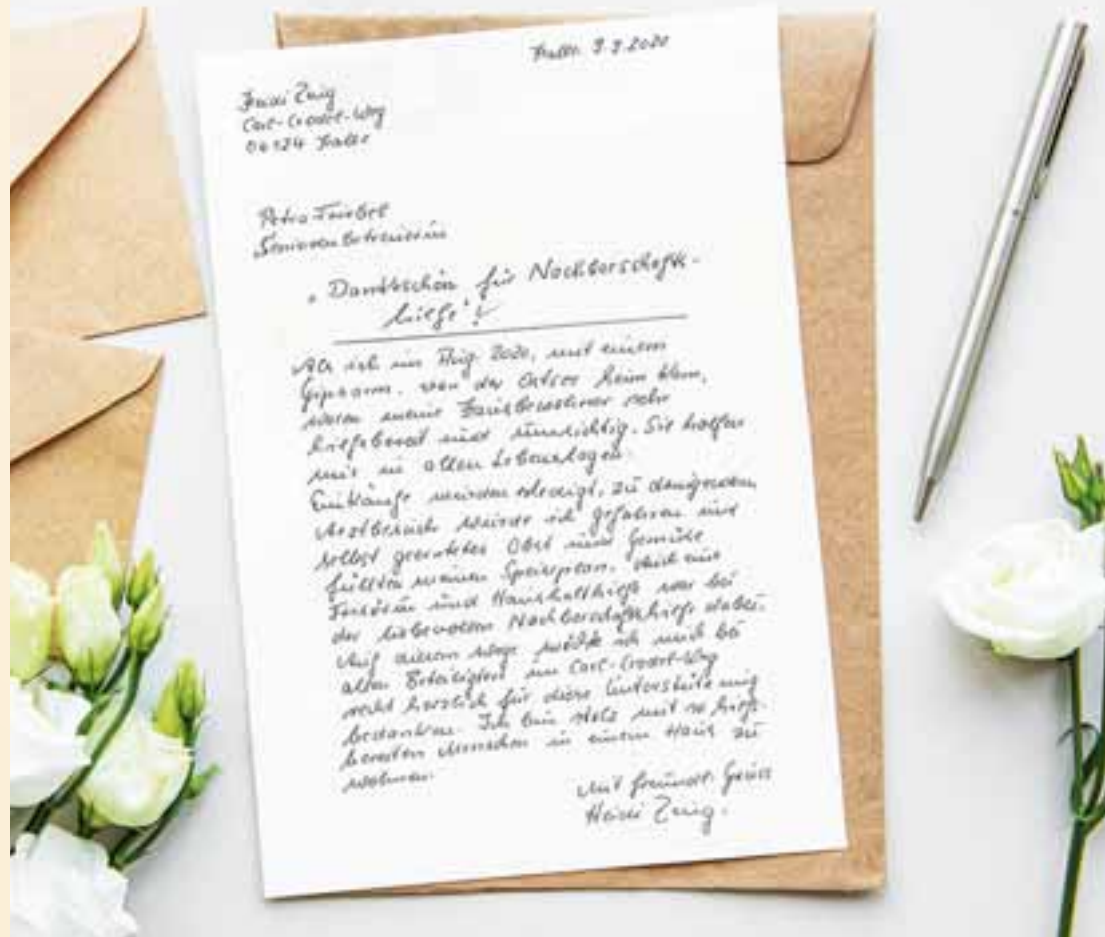 Halle, 9.9.2020
Heidi
Carl-Crodel-Weg
06124 Halle
Petra Friebel
Seniorenbetreuerin
"Dankeschön für Nachbarschafts-
hilfe"!
Als ich im Aug. 2020, mit einem
Gipsarm, von der Ostsee heim kam,
waren meine Hausbewohner sehr
hilfsbereit und umsichtig. Sie halfen
mir in allen Lebenslagen.
Einkäufe wurden erledigt, zu dringenden
Arztbesuch wurde ich gefahren und
selbst geerntetes Obst und Gemüse
füllten meinen Speiseplan. Auch eine
Friseurin und Haushalthilfe war bei
der liebevollen Nachbarschaftshilfe dabei.
Auf diesem Wege möchte ich mich bei
allen Beteiligten im Carl-Crodel-Weg
recht herzlich für diese Unterstützung
bedanken. Ich bin stolz mit so hilfs-
bereiten Menschen in einem Haus zu
wohnen.
Mit freundl. Gruss
Heidi